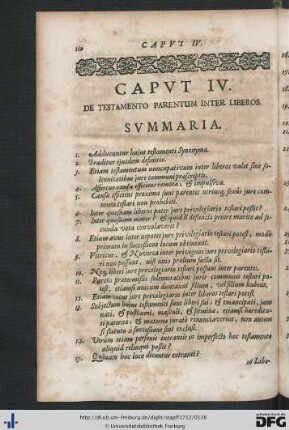 110
CAPVT IV.
CAPVT IV.
DE TESTAMENTO PARENTUM INTER LIBEROS.
SVMMARIA.
1. Adducuntur hujus testamenti Synonyma.
2. Traditur ejusdem definitio.
3. Etiam testamentum nuncupativum inter liberos valet sine so-
lennitatibus jure communi præscriptis.
4. Affertur causa efficiens remota, & impulsiva.
5. Causa efficiens proxima sunt parentes utriusq; sexus jure com-
muni testari non prohibiti.
6. Inter quosnam liberos pater jure privilegiario testari possit?
7. Inter quosnam mater? & quid si defuncto priore marito ad se-
cunda vota convolaverit?
8. Etiam avus inter nepotes jure privilegiario testari potest, modò
primum in successione locum obtineant.
9. Vitricus, & Noverca inter privignos jure privilegiario testa-
ri non possunt, nisi
10. Neq; liberi jure privilegiario testari possunt inter parentes.
11. Parens prætermissis solennitatibus juris communis testari po-
test, etiamsi unicum duntaxat filium, vel filiam habeat.
11. Etiam
inter liberos testari potest.
12. Subjectum hujus testamenti sunt liberi sui, & emancipati, jam
nati, & posthumi, masculi, & feminæ, etiamsi heredita-
ti paternæ, & maternæ juratò renunciaverint, non autem
si statuto à successione sint exclusi.
14. Vtrum etiam personæ extraneæ in imperfecto hoc testamento
aliquid relinqui possit?
15. Quinam hoc loco dicantur extranei?
16 Libe-
http://dl.ub.uni-freiburg.de/diglit/stapff1712/0126
© Universitätsbibliothek Freiburg
gefördert durch die
DFG